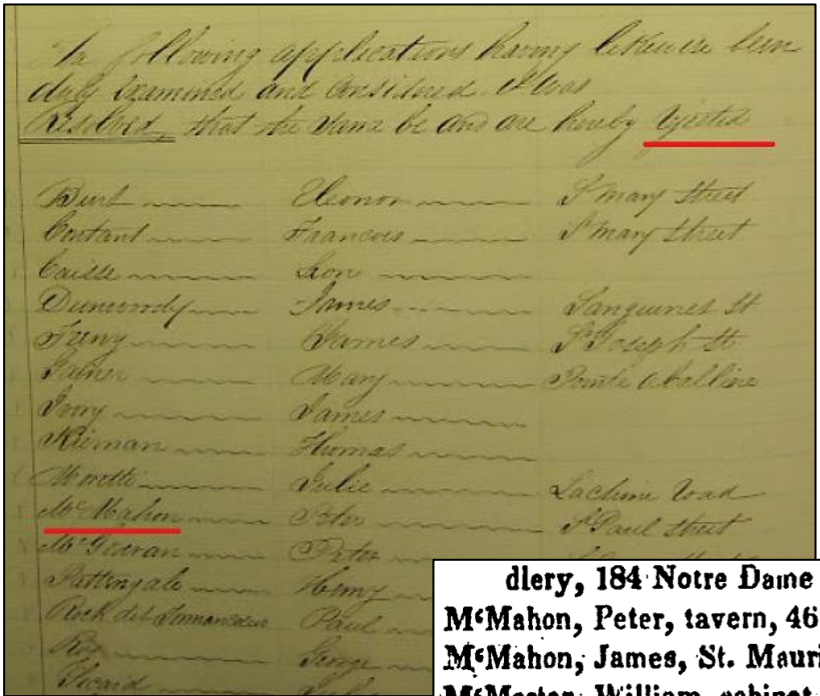 The following applications having likewise been
duly examined and considered it was
Resolved, that the same be and are hereby rejected
Burt Eleonor St Mary Street
Contant Francois St Mary Street
Caisse Leon
Dunwoody James Sanguinet St
Feeny James St Joseph St
Mary Pointe a Callière
Ivory James
Kiernan Thomas
Julie Lachine Road
McMahon Peter St Paul Street
Peter
Pattengale Henry
Paul
Roy George
Sicard
dlery, 184 Notre Dame
McMahon, Peter, tavern, 46
McMahon, James, St. Mauri
William, cabinet